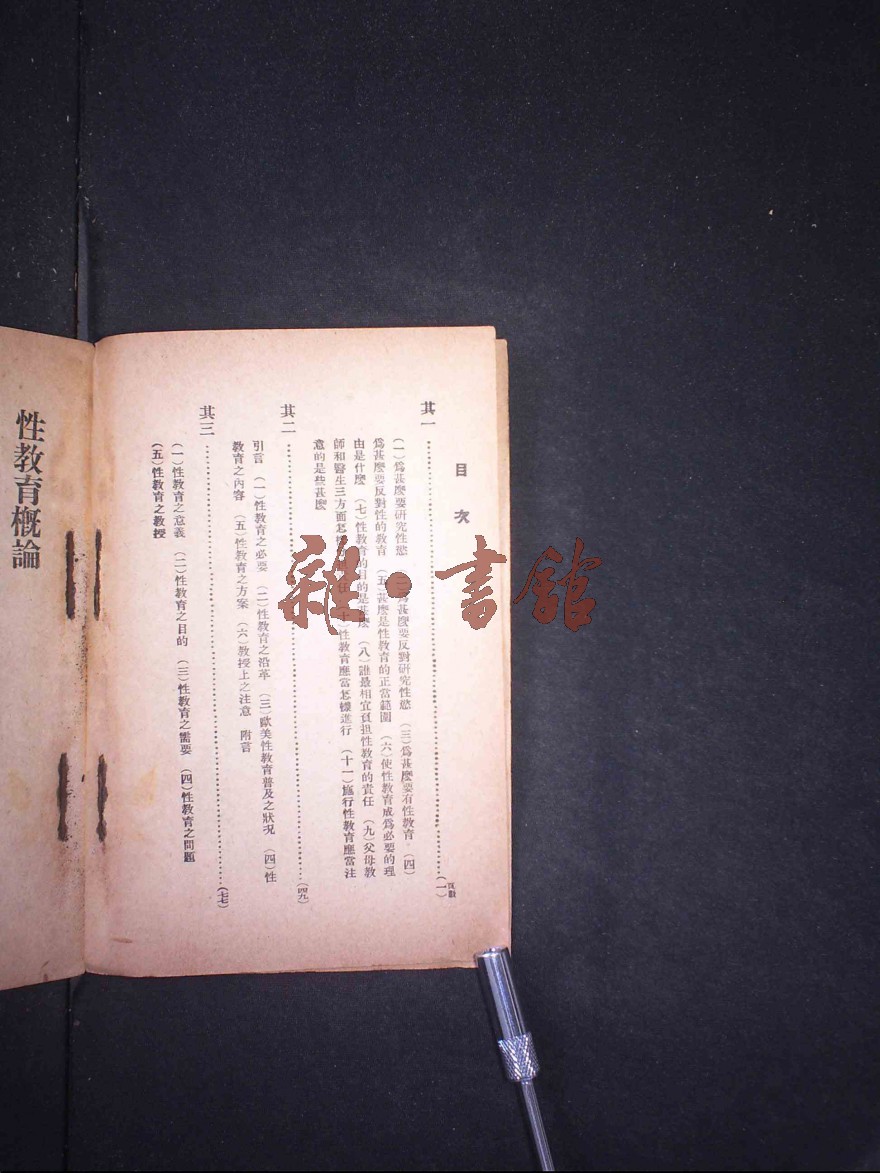 目次
頁數
其一……(一)
(一)爲甚麽要研究性慾 爲甚麽要反對研究性慾 (三)爲甚麽要有性教育 (四)
爲甚麽要反對性的教育 (五)甚麽是性教育的正當範圍 (六)使性教育成爲必要的理
由是什麽 (七)性教育的目的是甚麽 (八)誰最相宜負担性教育的責任 (九)父母教
師和醫生三方面怎 性教育應當怎樣進行 (十一)施行性教育應當注
意的是些甚麽
其二……(四九)
引言 (一)性教育之必要 (二)性教育之沿革 (三)歐美性教育普及之狀況 (四)性
教育之內容 (五)性教育之方案 (六)教授上之注意 附言
其三……(七七)
(一)性教育之意義 (二)性教育之目的 (三)性教育之需要 (四)性教育之問題
(五)性教育之教授
性教育概論
雜·書館